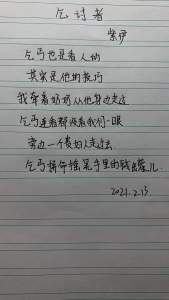 乞讨者
紫伊
乞丐也是看人的
其实是他的技巧
我牵着奶奶从他身边走过
乞丐连看都没看我们一眼
旁边一个老妇人走过去
乞丐拼命摇晃手里的钱串儿
2021.2.15